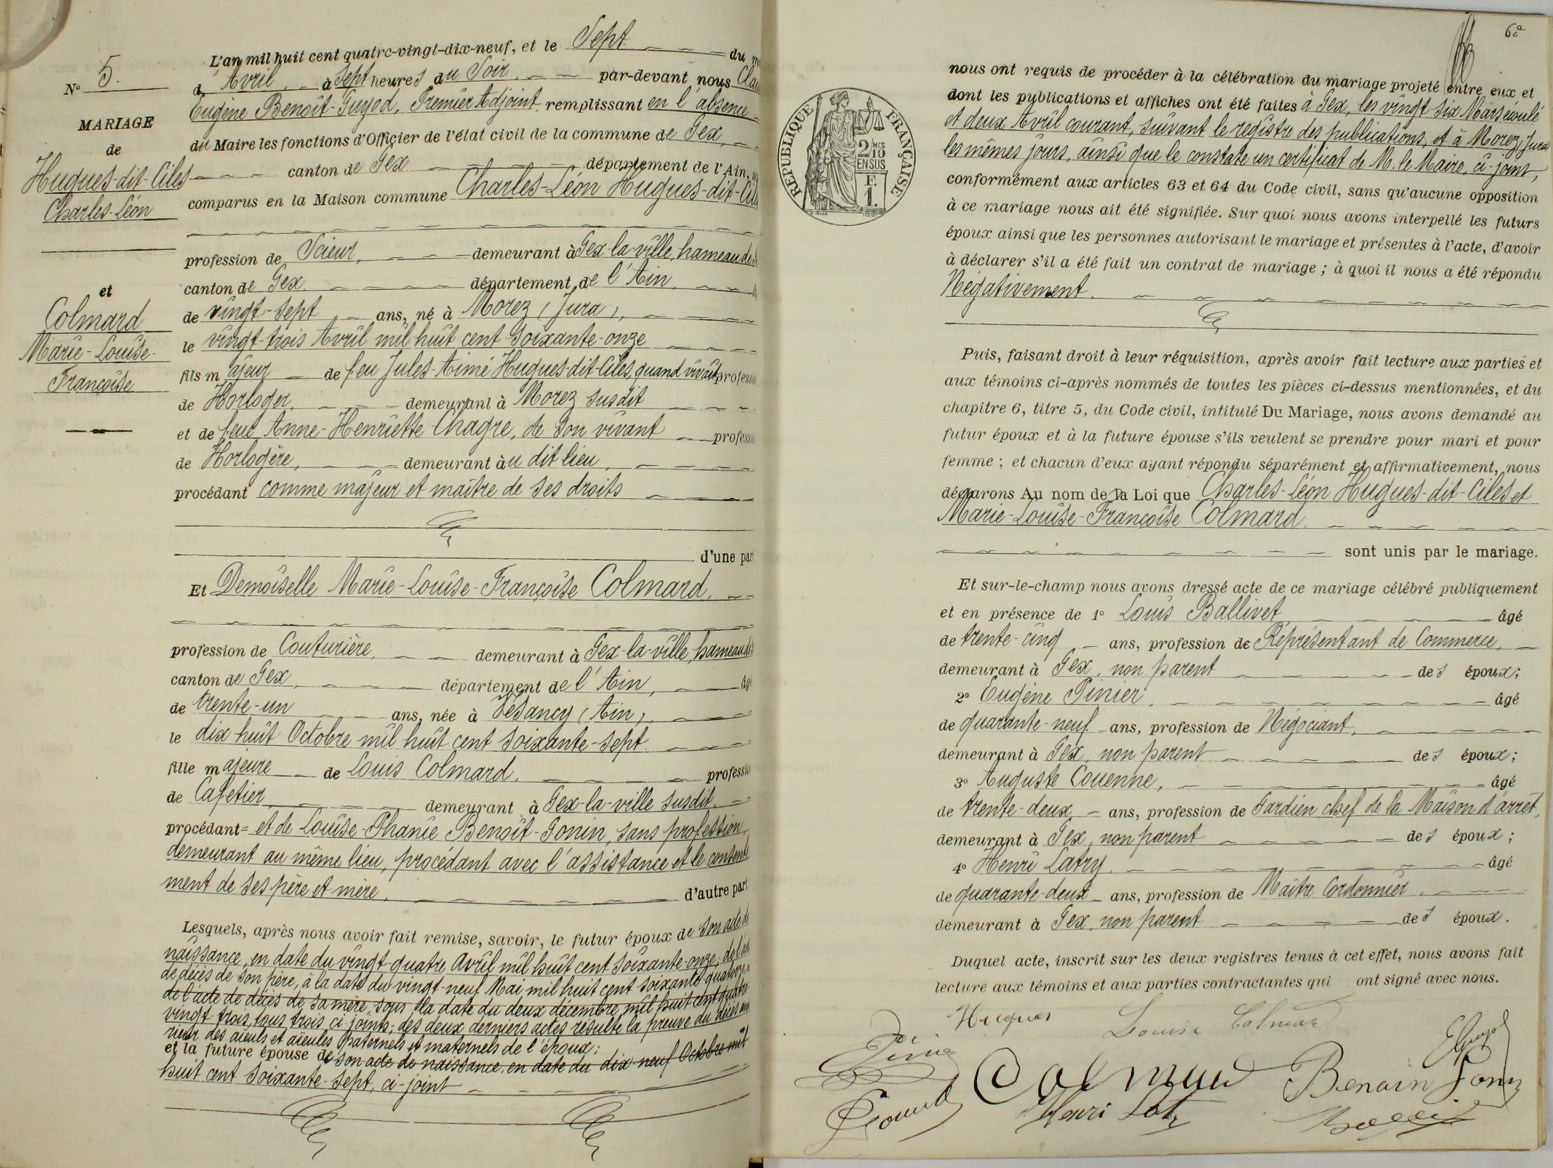 N° 5.
MARIAGE
de
Hugues-dit-Ciles
Charles-Léon
et
Colmard
Marie-Louise-
Françoise
L'an mil huit cent quatre-vingt-dix-neuf, et le Sept du
d' Avril, à Sept heures du Soir, par-devant nous
Eugène Benoît-Guyod, Premier Adjoint remplissant en l'absence
du Maire les fonctions d'Officier de l'état civil de la commune de Gex,
canton de Gex département de l'Ain,
comparus en la Maison commune Charles-Léon Hugues-dit-Ciles
profession de Scieur, demeurant à Gex-la-ville, hameau de
canton de Gex département de l'Ain
de vingt-sept ans, né à Morez (Jura),
le vingt-trois Avril mil huit cent soixante-onze
fils majeur de feu Jules-Aimé Hugues-dit-Ciles, quand vivait profess
de Horloger, demeurant à Morez susdit
et de feue Anne-Henriette Chagre, de son vivant profess
de Horlogère, demeurant au dit lieu,
procédant comme majeur et maître de ses droits
d'une par
Et Demoiselle Marie-Louise-Françoise Colmard,
profession de Couturière, demeurant à Gex-la-ville, hameau de
canton de Gex, département de l'Ain, âg
de trente-un ans, née à Vesancy (Ain),
le dix huit Octobre mil huit cent soixante-sept
fille majeure de Louis Colmard, profession
de Cafetier, demeurant à Gex-la-ville susdit,
procédant = et de Louise-Phanie Benoît-Gonin, sans profession
demeurant au même lieu, procédant avec l'assistance et le consente
ment de ses père et mère. d'autre part
Lesquels, après nous avoir fait remise, savoir, le futur époux de son acte de
naissance, en date du vingt-quatre Avril mil huit cent soixante-onze, de l'acte
de décès de son père, à la date du vingt neuf Mai mil huit cent soixante quatorze,
de l'acte de décès de sa mère, sous la date du deux décembre mil huit cent quatre
vingt trois, tous trois ci joints; des deux derniers actes résulte la preuve du décès
des aïeuls et aïeules paternels et maternels de l'époux;
et la future épouse de son acte de naissance en date du dix neuf Octobre mil
huit cent soixante-sept, ci-joint
6e
RÉPUBLIQUE FRANÇAISE
2/10 EN SUS
F.
1.
nous ont requis de procéder à la célébration du mariage projeté entre eux et
dont les publications et affiches ont été faites à Gex, les vingt-six Mars écoulé
et deux Avril courant, suivant le registre des publications, et à Morez, Jura
les mêmes jours, ainsi que le constate un certificat de M. le Maire, ci-joint,
conformément aux articles 63 et 64 du Code civil, sans qu'aucune opposition
à ce mariage nous ait été signifiée. Sur quoi nous avons interpellé les futurs
époux ainsi que les personnes autorisant le mariage et présentes à l'acte, d'avoir
à déclarer s'il a été fait un contrat de mariage ; à quoi il nous a été répondu
Négativement.
Puis, faisant droit à leur réquisition, après avoir fait lecture aux parties et
aux témoins ci-après nommés de toutes les pièces ci-dessus mentionnées, et du
chapitre 6, titre 5, du Code civil, intitulé Du Mariage, nous avons demandé au
futur époux et à la future épouse s'ils veulent se prendre pour mari et pour
femme ; et chacun d'eux ayant répondu séparément et affirmativement, nous
déclarons Au nom de la Loi que Charles-Léon Hugues-dit-Ciles et
Marie-Louise-Françoise Colmard.
sont unis par le mariage.
Et sur-le-champ nous avons dressé acte de ce mariage célébré publiquement
et en présence de 1° Louis Ballivet âgé
de trente-cinq ans, profession de Représentant de Commerce,
demeurant à Gex, non parent des époux;
2° Eugène Pinier, âgé
de quarante-neuf ans, profession de Négociant,
demeurant à Gex, non parent des époux;
3° Auguste Couenne, âgé
de trente-deux, ans, profession de Gardien chef de la Maison d'arrêt,
demeurant à Gex, non parent des époux ;
4° Henri Latry. âgé
de quarante-deux ans, profession de Maître Cordonnier
demeurant à Gex, non parent des époux.
Duquel acte, inscrit sur les deux registres tenus à cet effet, nous avons fait
lecture aux témoins et aux parties contractantes qui ont signé avec nous.
Hugues Louise Colmard
Colmard Benoin Gonin
Henri Lat